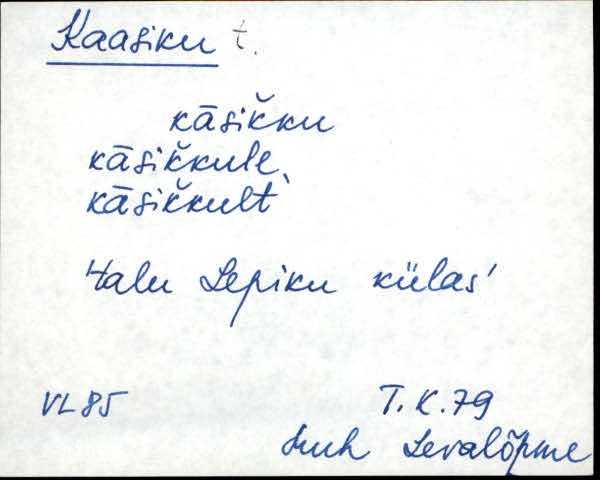 Kaasiku t.
kāsik̆ku
kāsik̆kule,
kāsik̆kult
Talu Lepiku külas
VL 85
T. K. 79
Levalõpme